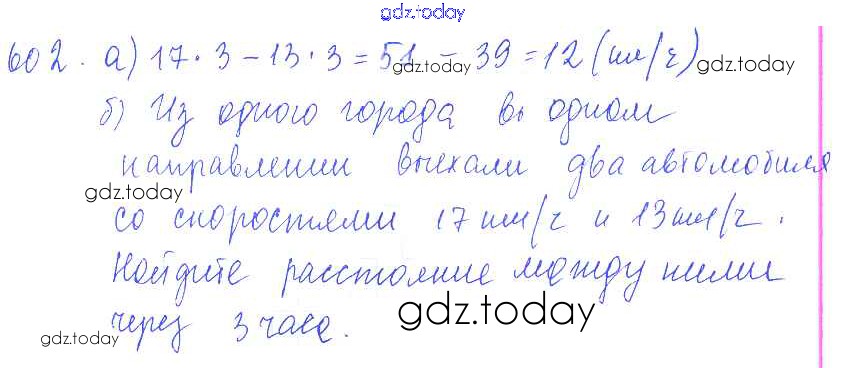 gdz.today
602. а) 17·3-13·3=51-39=12(км/ч) gdz.today
gdz.today
б) Из одного города в одном
направлении выехали два автомобиля
gdz.today
со скоростями 17 км/ч и 13 км/ч.
Найдите расстояние между ними
через 3 часа. gdz.today
gdz.today